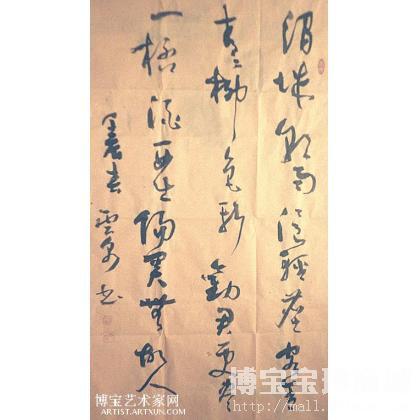 渭城朝雨浥輕塵客舍
青青柳色新勸君更盡
一杯酒西出陽關無故人
春雲
书
博宝艺术家网
ARTIST.ARTXUN.COM
博宝
http://mall.